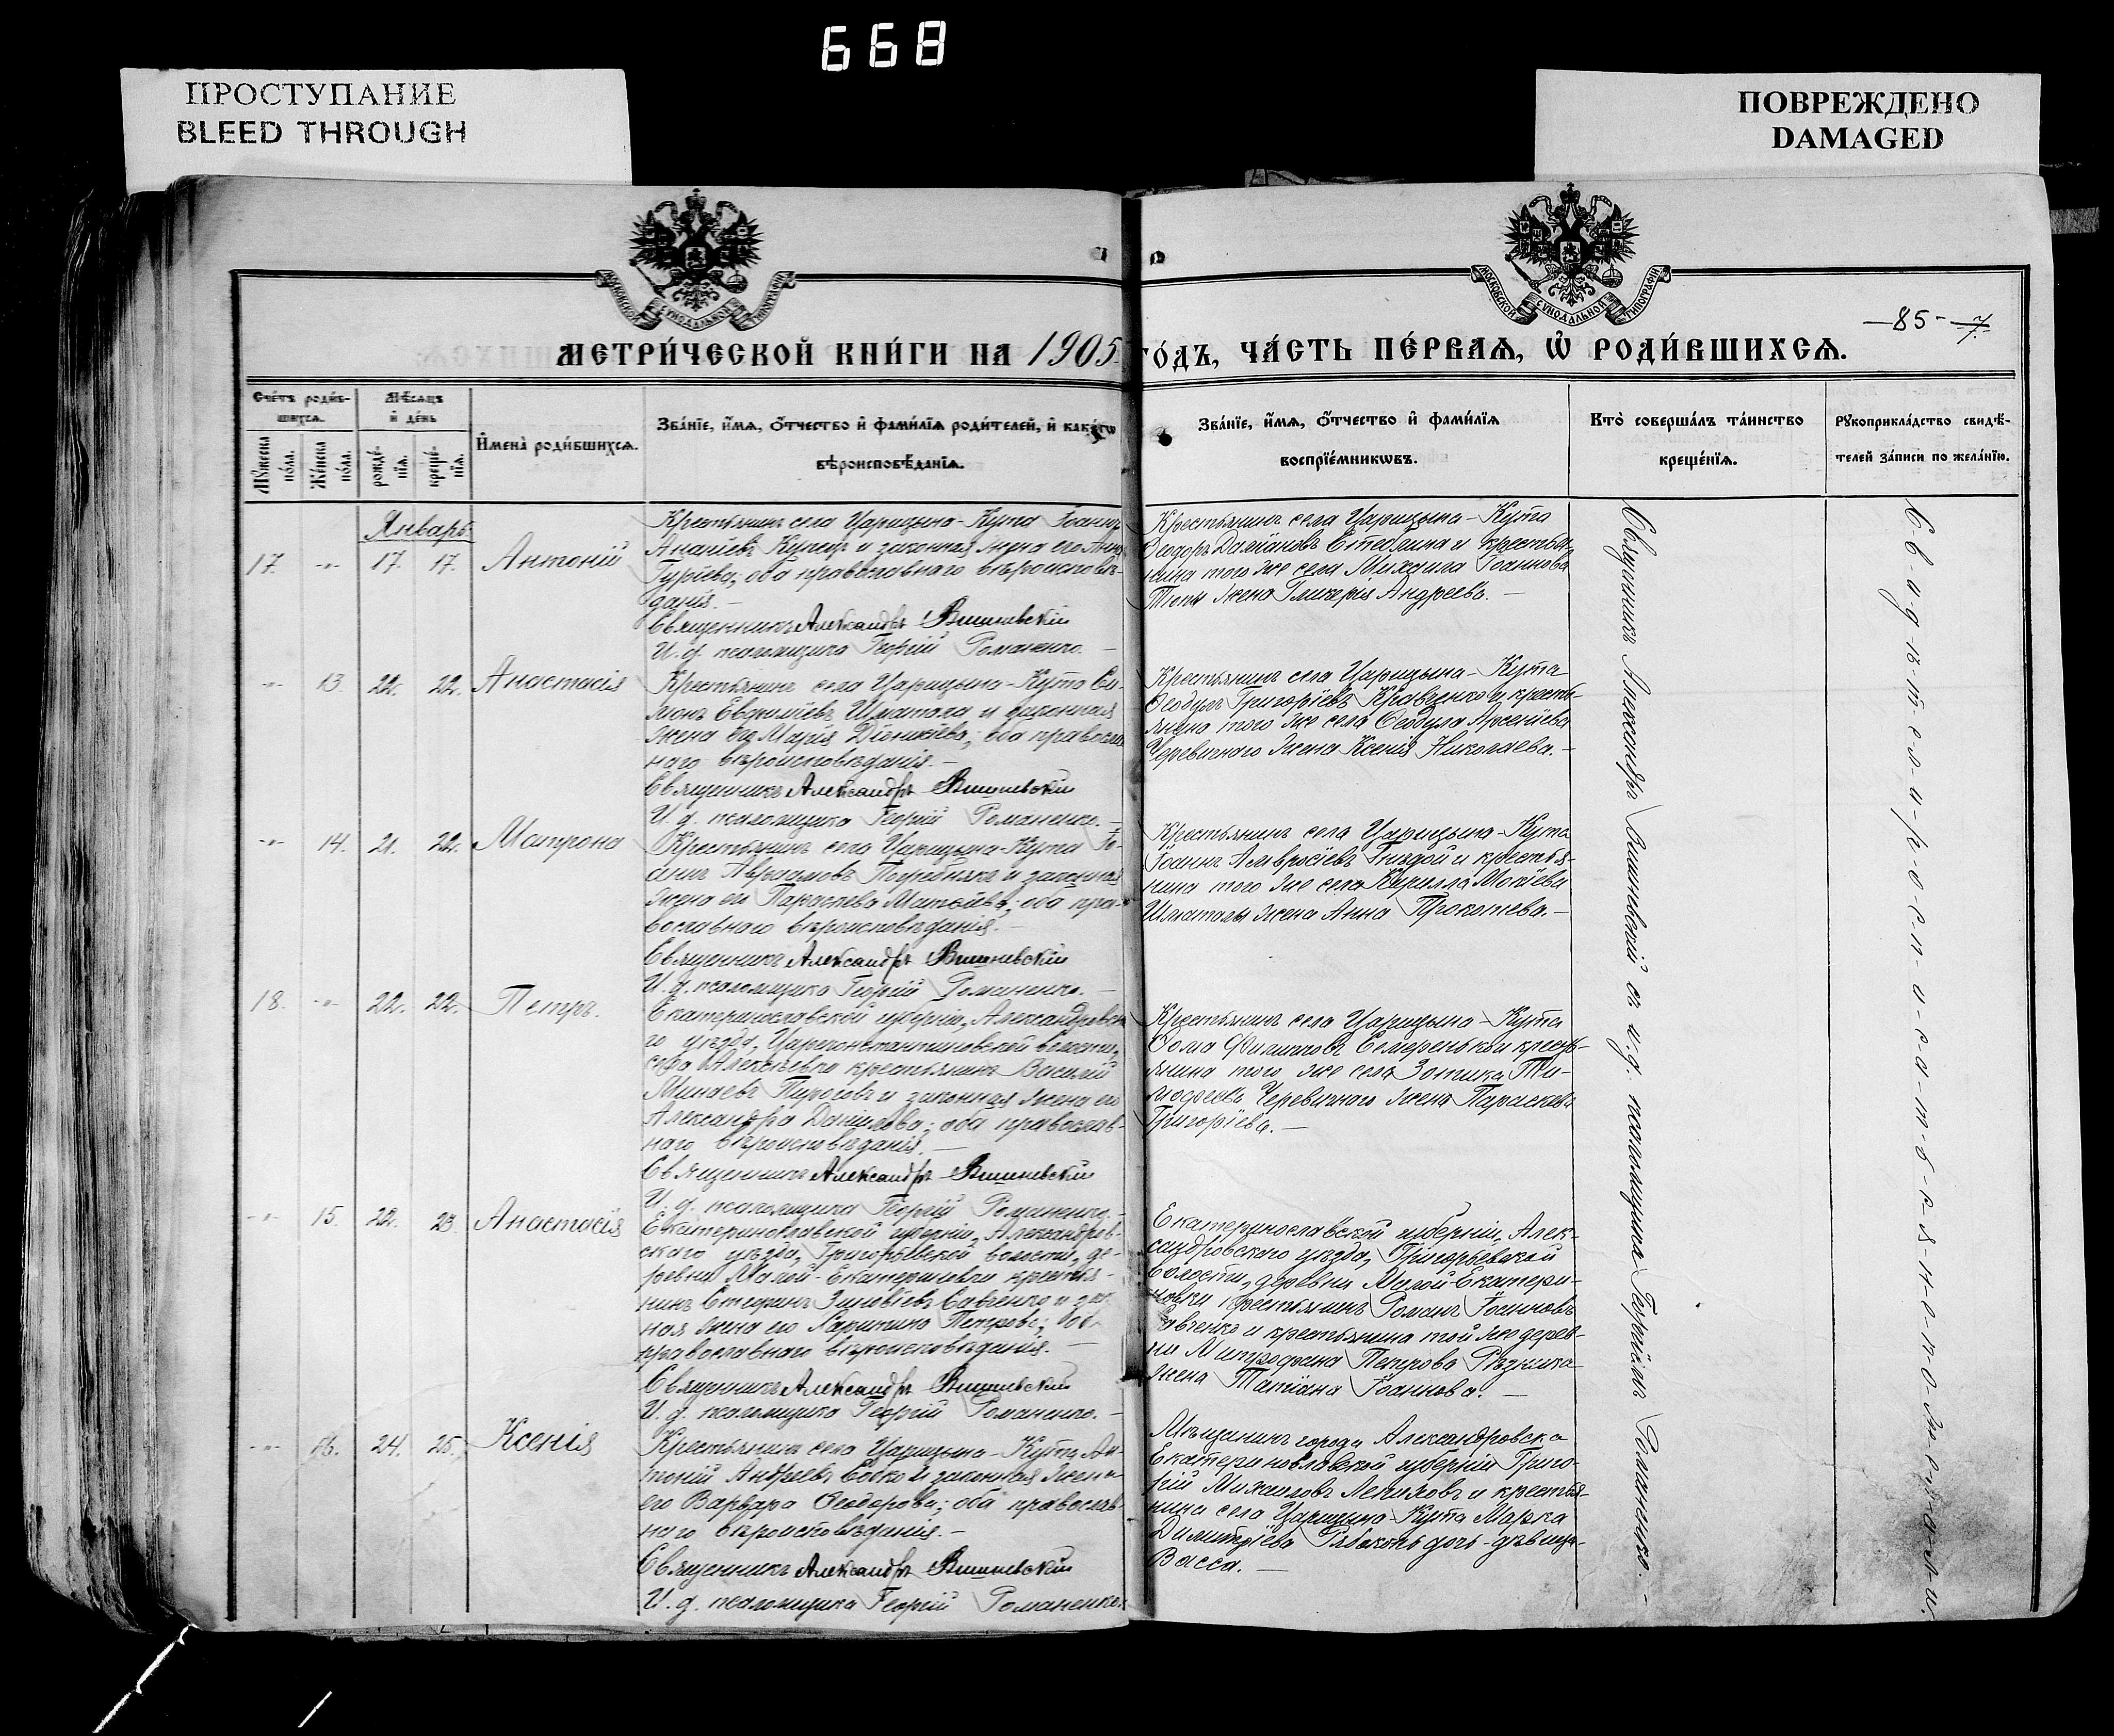 668
ПРОСТУПАНИЕ
BLEED THROUGH
ПОВРЕЖДЕНО
DAMAGED
МОСКОВСКОЙ СѴНОДАЛЬНОЙ ТИПОГРАФІИ
МОСКОВСКОЙ СѴНОДАЛЬНОЙ ТИПОГРАФІИ
—85— 7
МЕТРИ́ЧЕСКОЙ КНИ́ГИ НА 1905
ГО́ДЪ, ЧА́СТЬ ПЕ́РВАѦ, Ѽ РОДИ́ВШИХСѦ.
Сче́тъ роди́в-
шихсѧ.
Мꙋ́жеска по́ла.
Же́нска по́ла.
Мѣ́сѧцъ
и҆ де́нь
рожде́-
нїѧ.
креще́-
нїѧ.
И҆мена̀ роди́вшихсѧ.
Зва́нїе, и҆́мѧ, ѻ҆́тчество и҆ фамѝлїѧ роди́телей, и҆ како́гѡ
вѣроисповѣ́данїѧ.
Зва́нїе, и҆́мѧ, ѻ҆́тчество и҆ фамѝлїѧ
воспрїе́мникѡвъ.
Кто̀ соверша́лъ та́инство
креще́нїѧ.
Рꙋкоприкла́дство свидѣ́-
телей за́писи по жела́нїю.
Январь
17. -"- 17. 17. Антоній
Крестьянинъ села Царицына-Кута Іоаннъ
Ананіевъ Купецъ и законная жена его Анна
Гуріева; оба православнаго вѣроисповѣ-
данія.—
Священникъ Александръ Вишневскій
И. д. псаломщика Георгій Романенко. —
Крестьянинъ села Царицына-Кута
Ѳеодоръ Даміановъ и крестья-
нина того же села Михаила Іоаннова
жена Гликерія Андреева. —
-"- 13. 22. 22. Анастасія
Крестьянинъ села Царицына-Кута Си-
меонъ Евфиміевъ Шматала и законная
жена его Марія Діонисіева; оба православ-
наго вѣроисповѣданія.—
Священникъ Александръ Вишневскій
И. д. псаломщика Георгій Романенко. —
Крестьянинъ села Царицына-Кута
Ѳеодулъ Григоріевъ Кравченко и кресть-
янина того же села Ѳеодула Арсеніева
Черевичнаго жена Ксенія Николаева.—
-"- 14. 21. 22. Матрона
Крестьянинъ села Царицына-Кута Іо-
аннъ Авраамовъ Погребнякъ и законная
жена его Параскева Матѳіева; оба пра-
вославнаго вѣроисповѣданія.—
Священникъ Александръ Вишневскій
И. д. псаломщика Георгій Романенко. —
Крестьянинъ села Царицына-Кута
Іоаннъ Амвросіевъ Гнѣдой и крестья-
нина того же села Кирилла Мокіева
Шматалы жена Анна Прокопіева.—
18. -"- 22. 22. Петръ.
Екатеринославской губерніи, Александровска-
го уѣзда, Цареконстантиновской волости,
села Алексѣевки крестьянинъ Василій
Минаевъ Пироговъ и законная жена его
Александра Данилова; оба православ-
наго вѣроисповѣданія.—
Священникъ Александръ Вишневскій
И. д. псаломщика Георгій Романенко.—
Крестьянинъ села Царицына-Кута
Ѳома Филипповъ Семеренькои кресть-
янина того же села Зотика Ти-
моѳеева Черевичнаго жена Параскева
Григоріева.—
-"- 15. 22. 23. Анастасія
Екатеринославской губерніи, Александров-
скаго уѣзда, Григорьевской волости, де-
ревни Малой-Екатериновки крестья-
нинъ Стефанъ Зиновіевъ Савченко и закон-
ная жена его Харитина Петрова; оба
православнаго вѣроисповѣданія.—
Священникъ Александръ Вишневскій
И. д. псаломщика Георгій Романенко.—
Екатеринославской губерніи, Алек-
сандровскаго уѣзда, Григорьевской
волости, деревни Малой-Екатери-
новки крестьянинъ Романъ Іоанновъ
Савченко и крестьянина той же дерев-
ни Митрофана Петрова Рѣзника
жена Татіана Іоаннова.—
-"- 16. 24. 25. Ксенія
Крестьянинъ села Царицына-Кута Ан-
тоній Андреевъ Собко и законная жена
его Варвара Ѳеодорова; оба православ-
наго вѣроисповѣданія.—
Священникъ Александръ Вишневскій
И. д. псаломщика Георгій Романенко.
Мѣщанинъ города Александровска
Екатеринославской губерніи Григо-
рій Михаиловъ Логиновъ и крестья-
нина села Царицына-Кута Марка
Димитріева дочь-дѣвица
Васса.—
Священникъ Александръ Вишневскій съ и. д. псаломщика Георгіемъ Романенко.—